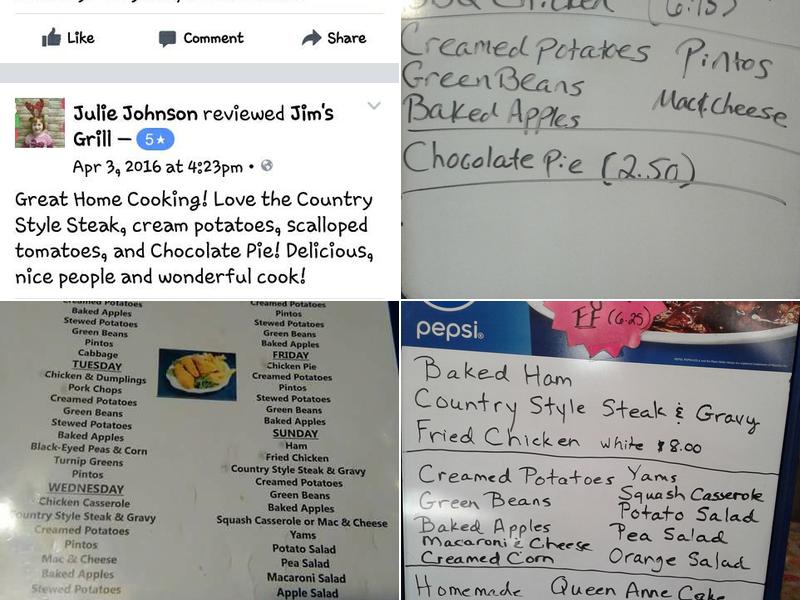 Like Comment Share
Julie Johnson reviewed Jim's
Grill — 5★
Apr 3, 2016 at 4:23pm •
Great Home Cooking! Love the Country
Style Steak, cream potatoes, scalloped
tomatoes, and Chocolate Pie! Delicious,
nice people and wonderful cook!
BBQ Chicken (6.75)
Creamed Potatoes Pintos
Green Beans
Baked Apples Mac & Cheese
Chocolate Pie (2.50)
Creamed Potatoes
Baked Apples
Stewed Potatoes
Green Beans
Pintos
Cabbage
TUESDAY
Chicken & Dumplings
Pork Chops
Creamed Potatoes
Green Beans
Stewed Potatoes
Baked Apples
Black-Eyed Peas & Corn
Turnip Greens
Pintos
WEDNESDAY
Chicken Casserole
Country Style Steak & Gravy
Creamed Potatoes
Pintos
Mac & Cheese
Baked Apples
Stewed Potatoes
Creamed Potatoes
Pintos
Stewed Potatoes
Green Beans
Baked Apples
FRIDAY
Chicken Pie
Creamed Potatoes
Pintos
Stewed Potatoes
Green Beans
Baked Apples
SUNDAY
Ham
Fried Chicken
Country Style Steak & Gravy
Creamed Potatoes
Green Beans
Baked Apples
Squash Casserole or Mac & Cheese
Yams
Potato Salad
Pea Salad
Macaroni Salad
Apple Salad
pepsi
FF (6.25)
Baked Ham
Country Style Steak & Gravy
Fried Chicken white $8.00
Creamed Potatoes Yams
Green Beans Squash Casserole
Baked Apples Potato Salad
Macaroni & Cheese Pea Salad
Creamed Corn Orange Salad
Homemade Queen Anne Cake